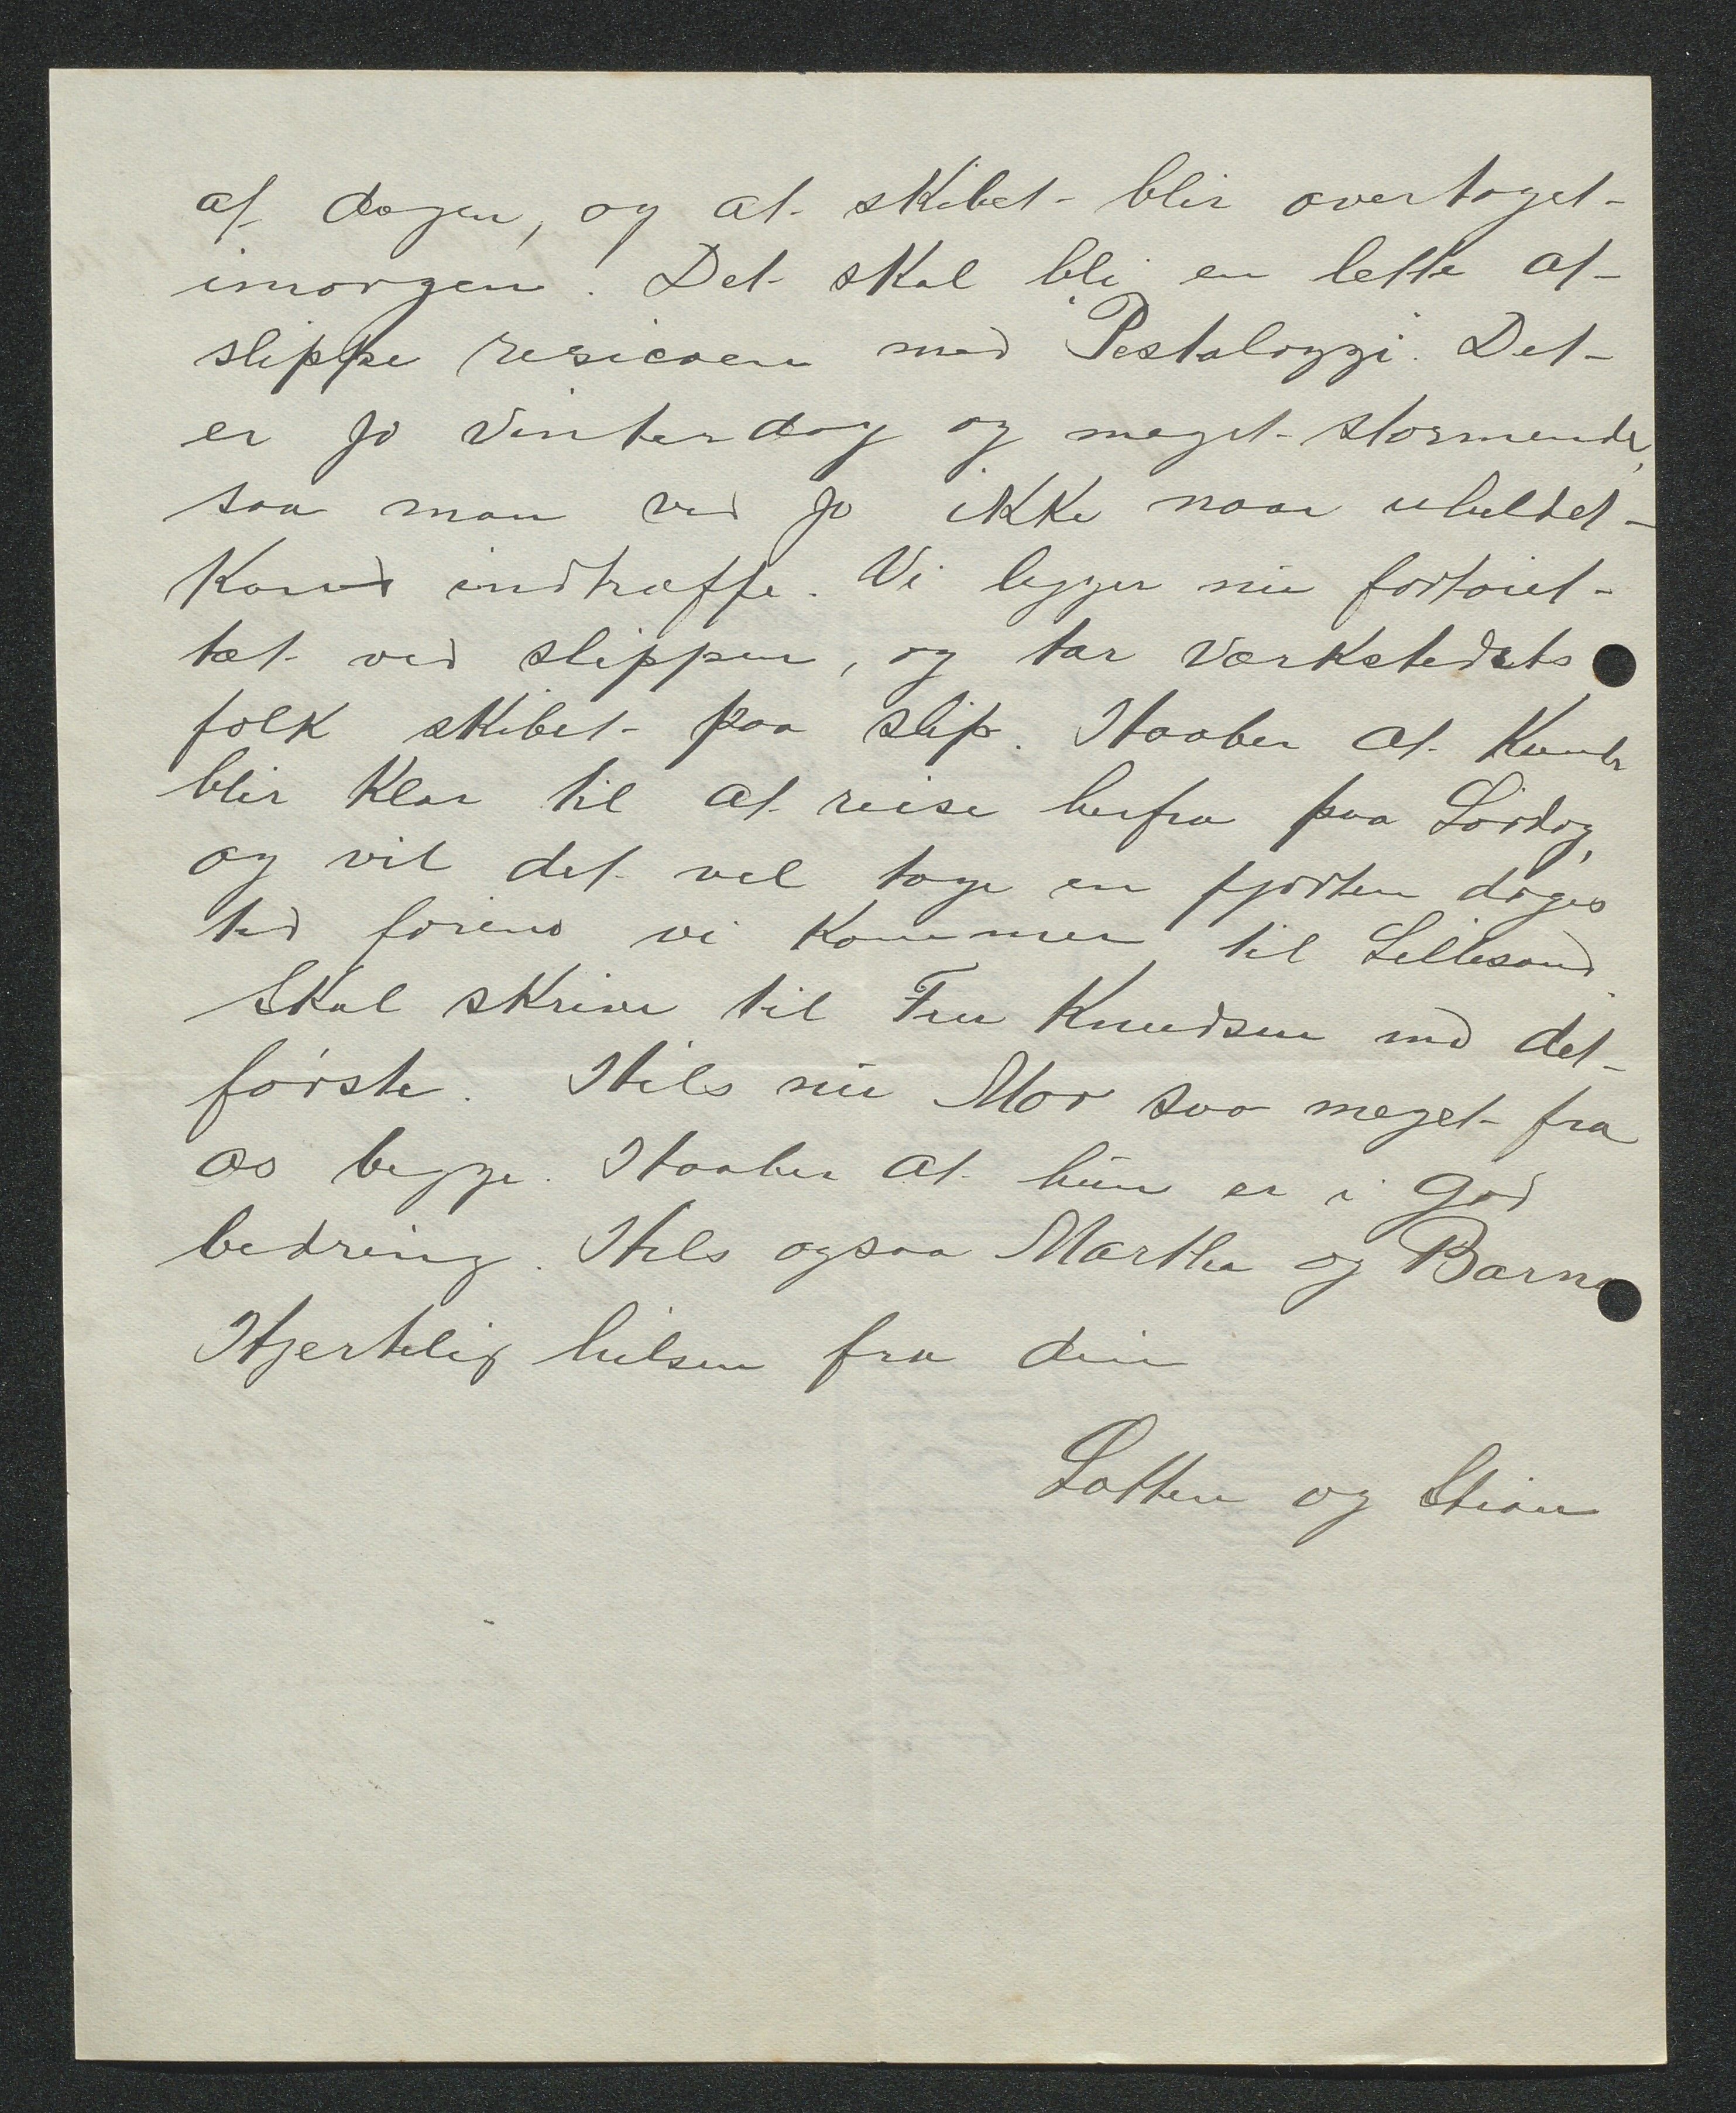 af dagen, og at skibet blir overtaget
imorgen. Det skal bli en lette at
slippe resicoen med "Pestalozzi". Det
er jo Vinterdag og meget stormende,
saa man ved jo ikke naar uheldet
kand indtræffe. Vi ligger nu fortøiet
tæt ved slippen, og tar Værkstedets
folk skibet paa slip. Haaber at kunde
blir klar til at reise herfra paa Lørdag,
og vil det vel tage en fjorten dages
tid førend vi kommer til Lillesand.
Skal skrive til Fru Knudsen med det
første. Hils nu Mor saa meget fra
os begge. Haaber at hun er i god
bedring. Hils ogsaa Martha og Barna
Hjertelig hilsen fra din
Lotten og Stian